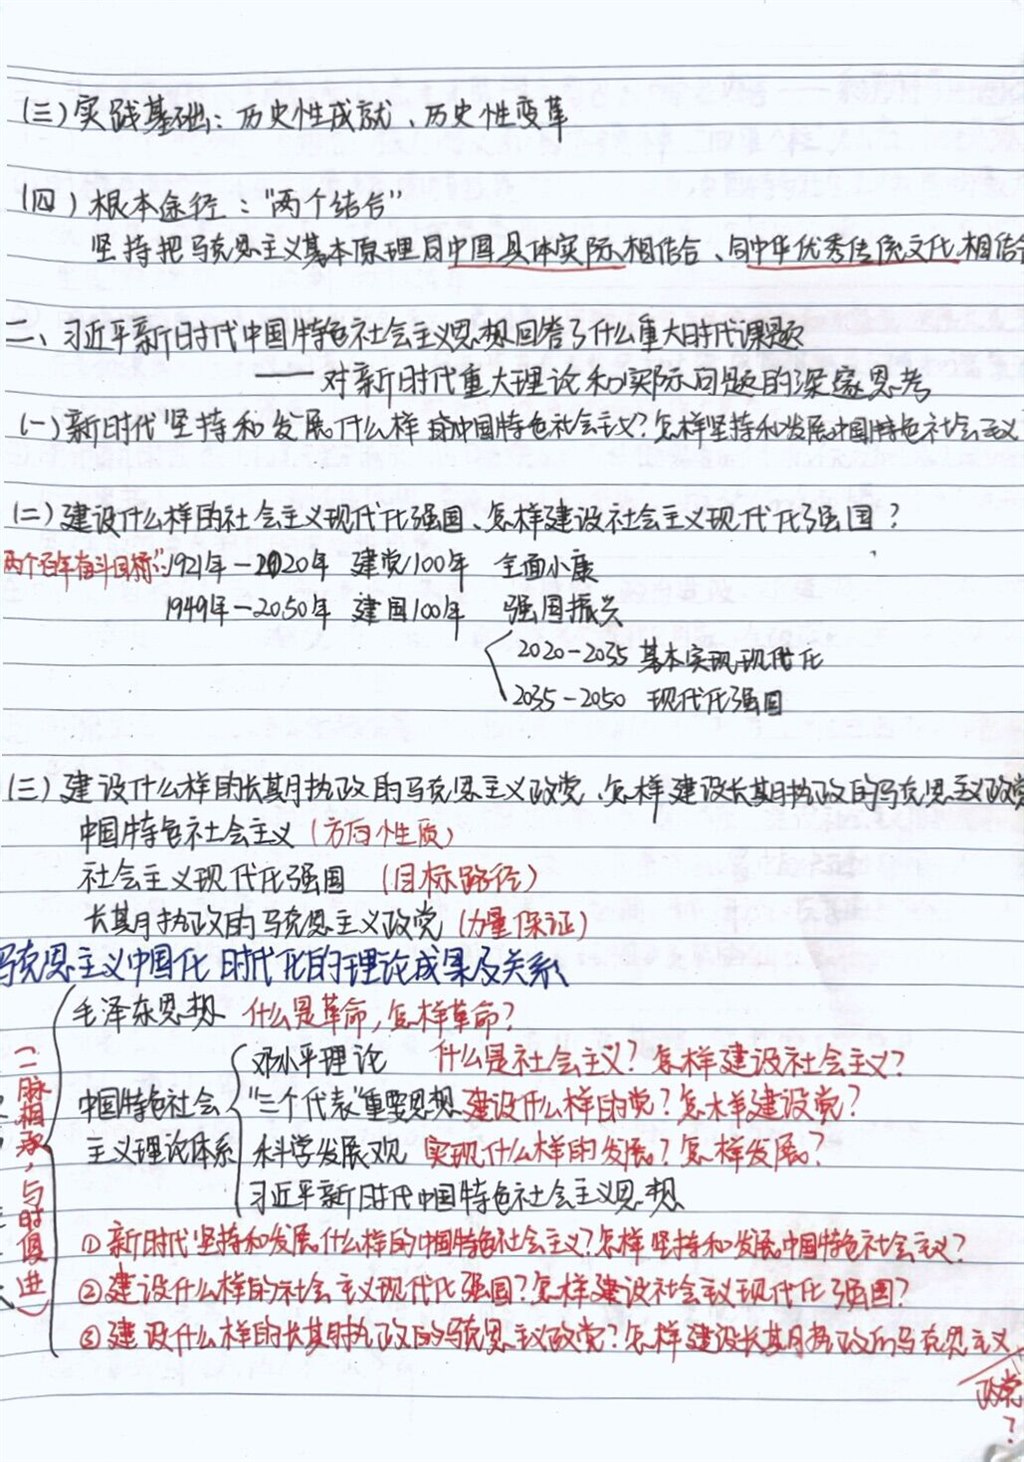 (三)实践基础:历史性成就、历史性变革
(四)根本途径:“两个结合”
坚持把马克思主义基本原理同中国具体实际相结合、同中华优秀传统文化相结合
二、习近平新时代中国特色社会主义思想回答了什么重大时代课题
——对新时代重大理论和实际问题的深邃思考
(一)新时代坚持和发展什么样的中国特色社会主义?怎样坚持和发展中国特色社会主义
(二)建设什么样的社会主义现代化强国、怎样建设社会主义现代化强国?
两个百年奋斗目标”:1921年—2020年 建党100年 全面小康
1949年—2050年 建国100年 强国振兴
2020-2035 基本实现现代化
2035-2050 现代化强国
(三)建设什么样的长期执政的马克思主义政党、怎样建设长期执政的马克思主义政党
中国特色社会主义(方向性质)
社会主义现代化强国 (目标路径)
长期执政的马克思主义政党(力量保证)
马克思主义中国化时代化的理论成果及关系
毛泽东思想 什么是革命,怎样革命?
邓小平理论 什么是社会主义?怎样建设社会主义?
中国特色社会 “三个代表”重要思想 建设什么样的党?怎样建设党?
主义理论体系 科学发展观 实现什么样的发展?怎样发展?
习近平新时代中国特色社会主义思想
(一脉相承,与时俱进)
①新时代坚持和发展什么样的中国特色社会主义?怎样坚持和发展中国特色社会主义?
②建设什么样的社会主义现代化强国?怎样建设社会主义现代化强国?
③建设什么样的长期执政的马克思主义政党?怎样建设长期执政的马克思主义
政党
?